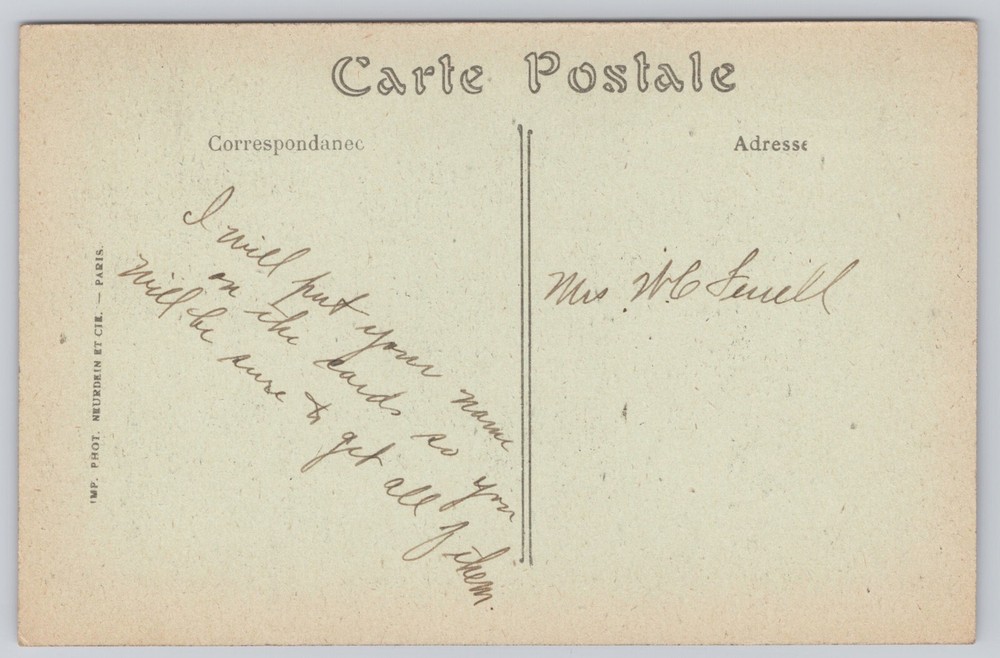 Carte Postale
Correspondance
Adresse
I will put your name
on the cards so you
will be sure to get all of them.
Mrs W C Ferrell
IMP. PHOT. NEURDEIN ET CIE. — PARIS.